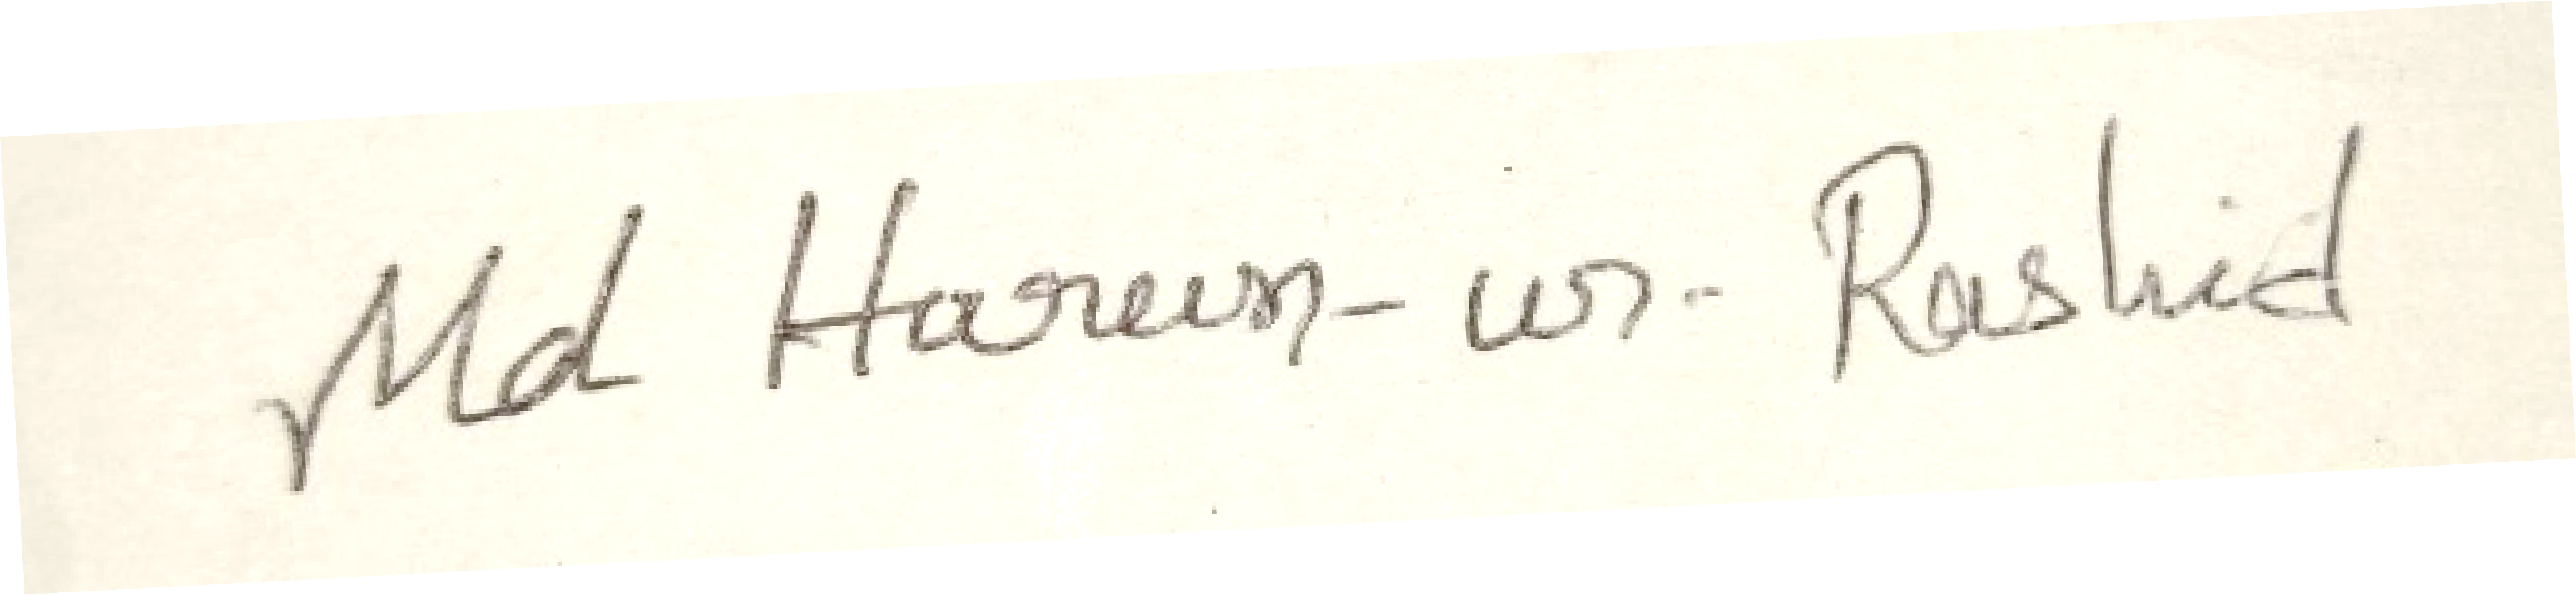 Md Harun-ur-Rashid